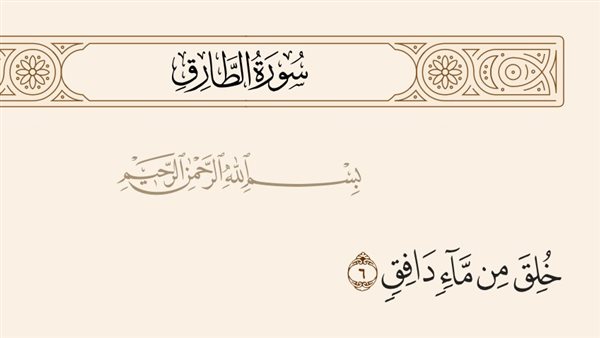 سُورَةُ الطَّارِقِ
بِسْمِ اللَّهِ الرَّحْمَٰنِ الرَّحِيمِ
خُلِقَ مِن مَّآءٍ دَافِقٍ ٦